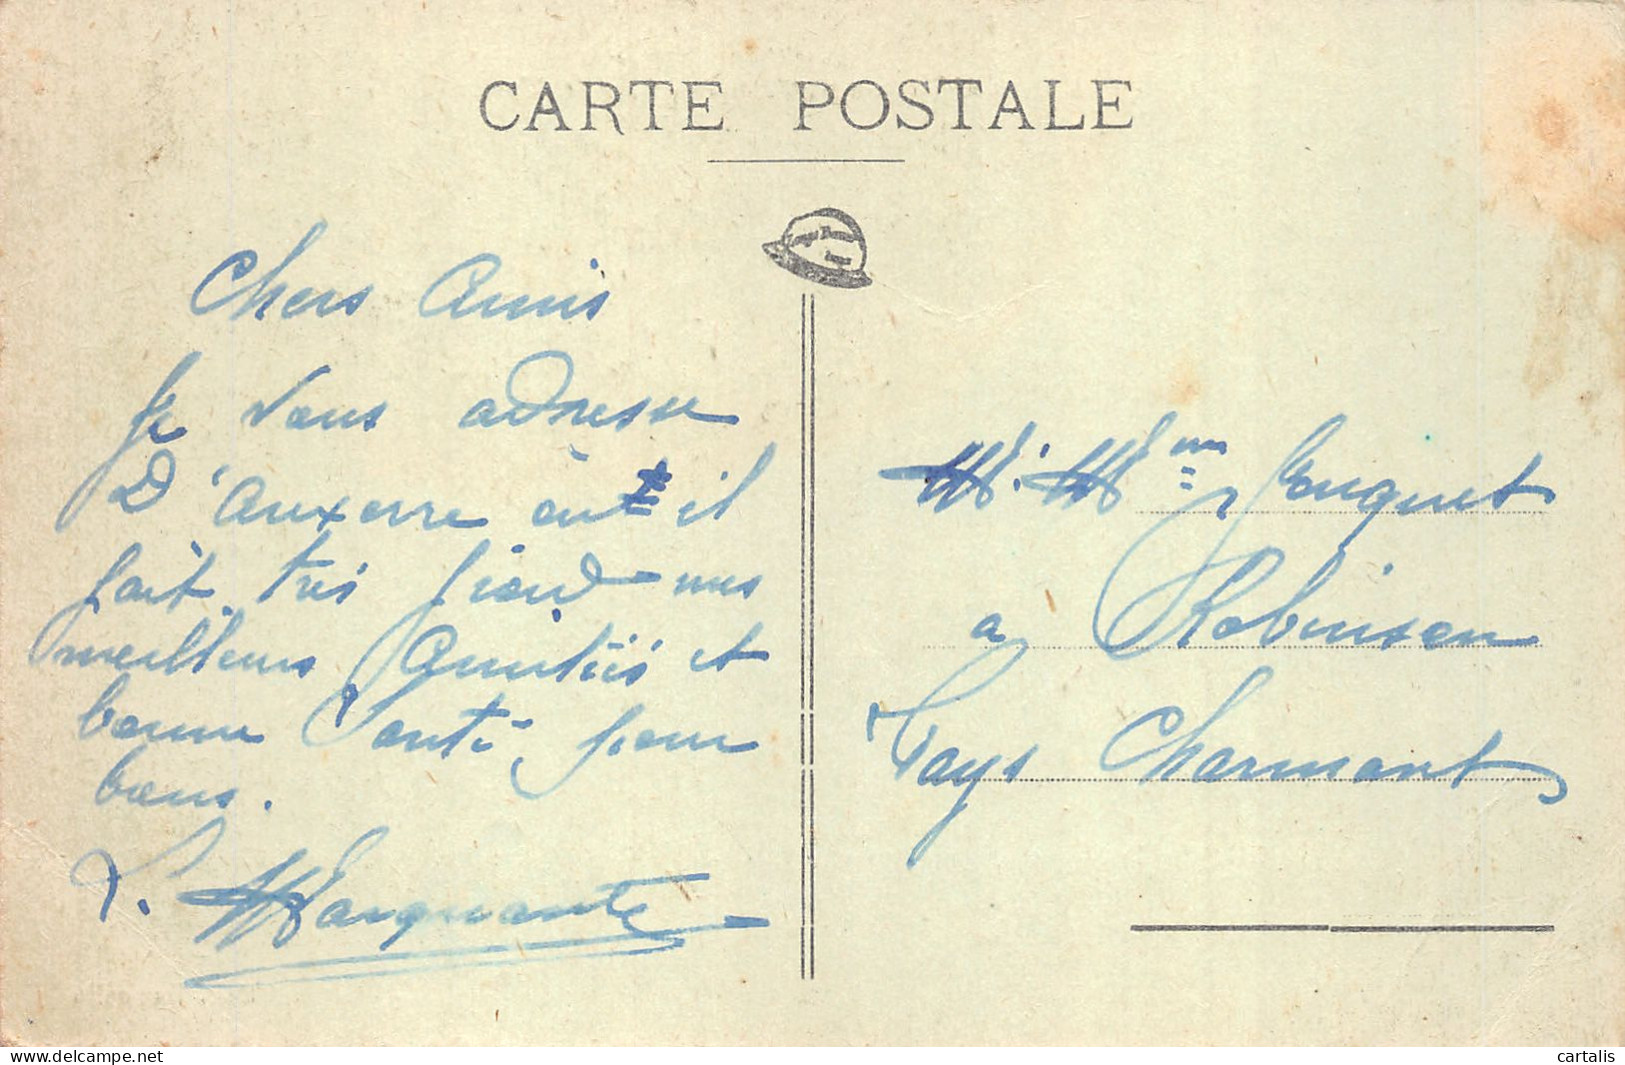 CARTE POSTALE
Chers Amis
Je vous adresse
D'Auxerre ou il
fait très froid mes
meilleurs Amitiés et
bonne Santé pour
vous.
L. Marquante
Mr. Mme Jouquet
a Robinson
Pays Charmant
delcampe.net
cartalis